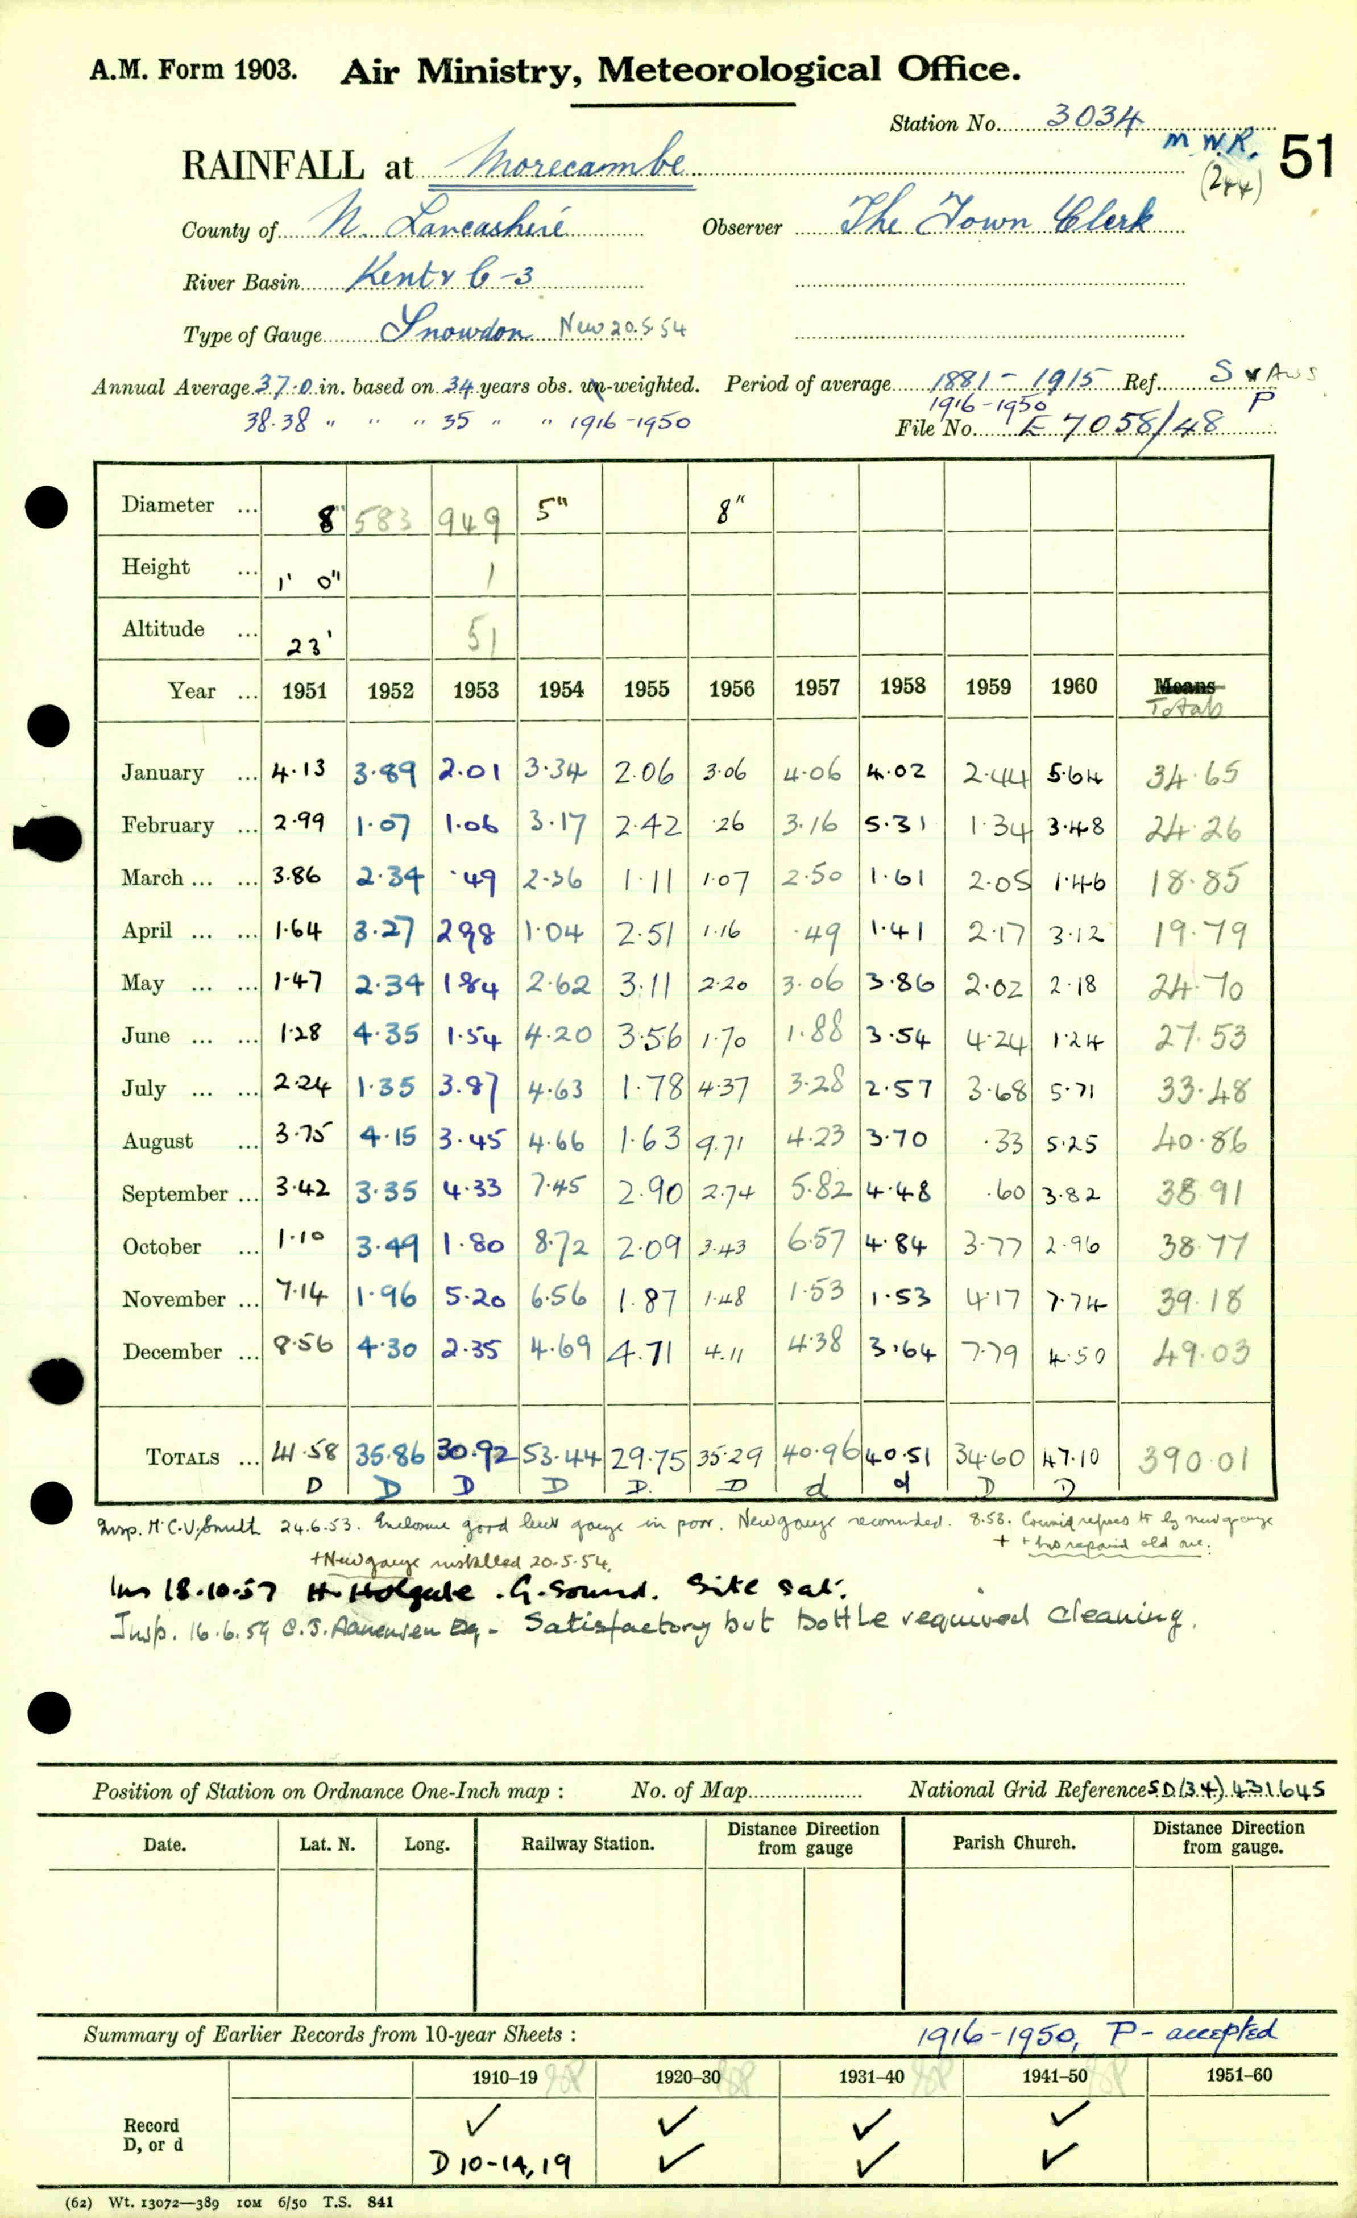 A.M. Form 1903. Air Ministry, Meteorological Office.
Station No. 3034
M.W.R. 51
(244)
RAINFALL at Morecambe
County of N. Lancashire Observer The Town Clerk
River Basin Kent & C-3
Type of Gauge Snowdon New 20.5.54
Annual Average 37.0 in. based on 34 years obs. un-weighted. Period of average 1881-1915 Ref. S & Aws
1916-1950 P
38.38 " " " 35 " " 1916-1950 File No. E 7058/48
Diameter ... 8" 583 949 5" 8"
Height ... 1' 0" 1
Altitude ... 23' 51
Year ... 1951 1952 1953 1954 1955 1956 1957 1958 1959 1960 Means
Totals
January ... 4.13 3.89 2.01 3.34 2.06 3.06 4.06 4.02 2.44 5.64 34.65
February ... 2.99 1.07 1.06 3.17 2.42 .26 3.16 5.31 1.34 3.48 24.26
March ... ... 3.86 2.34 .49 2.36 1.11 1.07 2.50 1.61 2.05 1.46 18.85
April ... ... 1.64 3.27 2.98 1.04 2.51 1.16 .49 1.41 2.17 3.12 19.79
May ... ... 1.47 2.34 1.84 2.62 3.11 2.20 3.06 3.86 2.02 2.18 24.70
June ... ... 1.28 4.35 1.54 4.20 3.56 1.70 1.88 3.54 4.24 1.24 27.53
July ... ... 2.24 1.35 3.87 4.63 1.78 4.37 3.28 2.57 3.68 5.71 33.48
August ... 3.75 4.15 3.45 4.66 1.63 9.71 4.23 3.70 .33 5.25 40.86
September ... 3.42 3.35 4.33 7.45 2.90 2.74 5.82 4.48 .60 3.82 38.91
October ... 1.10 3.49 1.80 8.72 2.09 3.43 6.57 4.84 3.77 2.96 38.77
November ... 7.14 1.96 5.20 6.56 1.87 1.48 1.53 1.53 4.17 7.74 39.18
December ... 8.56 4.30 2.35 4.69 4.71 4.11 4.38 3.64 7.79 4.50 49.03
TOTALS ... 41.58 35.86 30.92 53.44 29.75 35.29 40.96 40.51 34.60 47.10 390.01
D D D D D. D d d D D
Insp. H.C.V. Smith 24.6.53. Enclosure good level gauge in poor. New gauge recommded. 8.53. Council refuses to by new gauge
+ New gauge installed 20.5.54. + + has repaired old one.
Ins 18.10.57 H. Holgate. G. Sound. Site sat.
Insp. 16.6.59 Esq - Satisfactory but bottle required cleaning.
Position of Station on Ordnance One-Inch map : No. of Map National Grid Reference SD(34) 431645
Date. Lat. N. Long. Railway Station. Distance from Direction gauge Parish Church. Distance from Direction gauge.
Summary of Earlier Records from 10-year Sheets : 1916-1950, P - accepted
1910–19 1920–30 1931–40 1941–50 1951–60
Record ✓ ✓ ✓ ✓
D, or d D 10-14, 19 ✓ ✓ ✓
(62) Wt. 13072—389 10M 6/50 T.S. 841